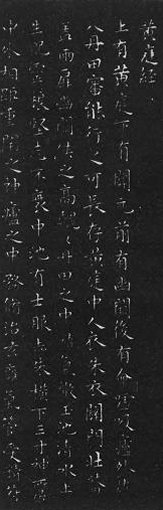 黄庭經
上有黄庭下有關元前有幽闕後有命嘘吸廬外出
入丹田審能行之可長存黄庭中人衣朱衣關門壯籥
盖兩扉幽闕侠之高巍巍丹田之中精氣微玉池清水上
生肥靈根堅志不衰中池有士服赤朱横下三寸神所居
中外相距重閉之神廬之中務脩治玄膺氣管受精符